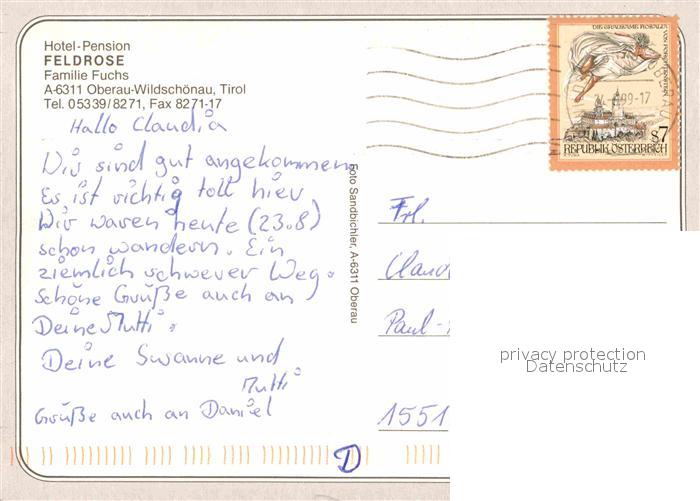 Hotel-Pension
FELDROSE
Familie Fuchs
A-6311 Oberau-Wildschönau, Tirol
Tel. 05339/8271, Fax 8271-17
Hallo Claudia
Wir sind gut angekommen
Es ist richtig toll hier
Wir waren heute (23.8)
schon wandern. Ein
ziemlich schwerer Weg.
Schöne Grüße auch an
Deine Mutti.
Deine Swanne und
Mutti
Grüße auch an Daniel
Foto Sandbichler, A-6311 Oberau
DIE GRAUSAME ROSALIA
VON FORCHTENSTEIN
99-17
s7
REPUBLIK ÖSTERREICH
Frl.
Claud
Paul-
1551
D
privacy protection
Datenschutz